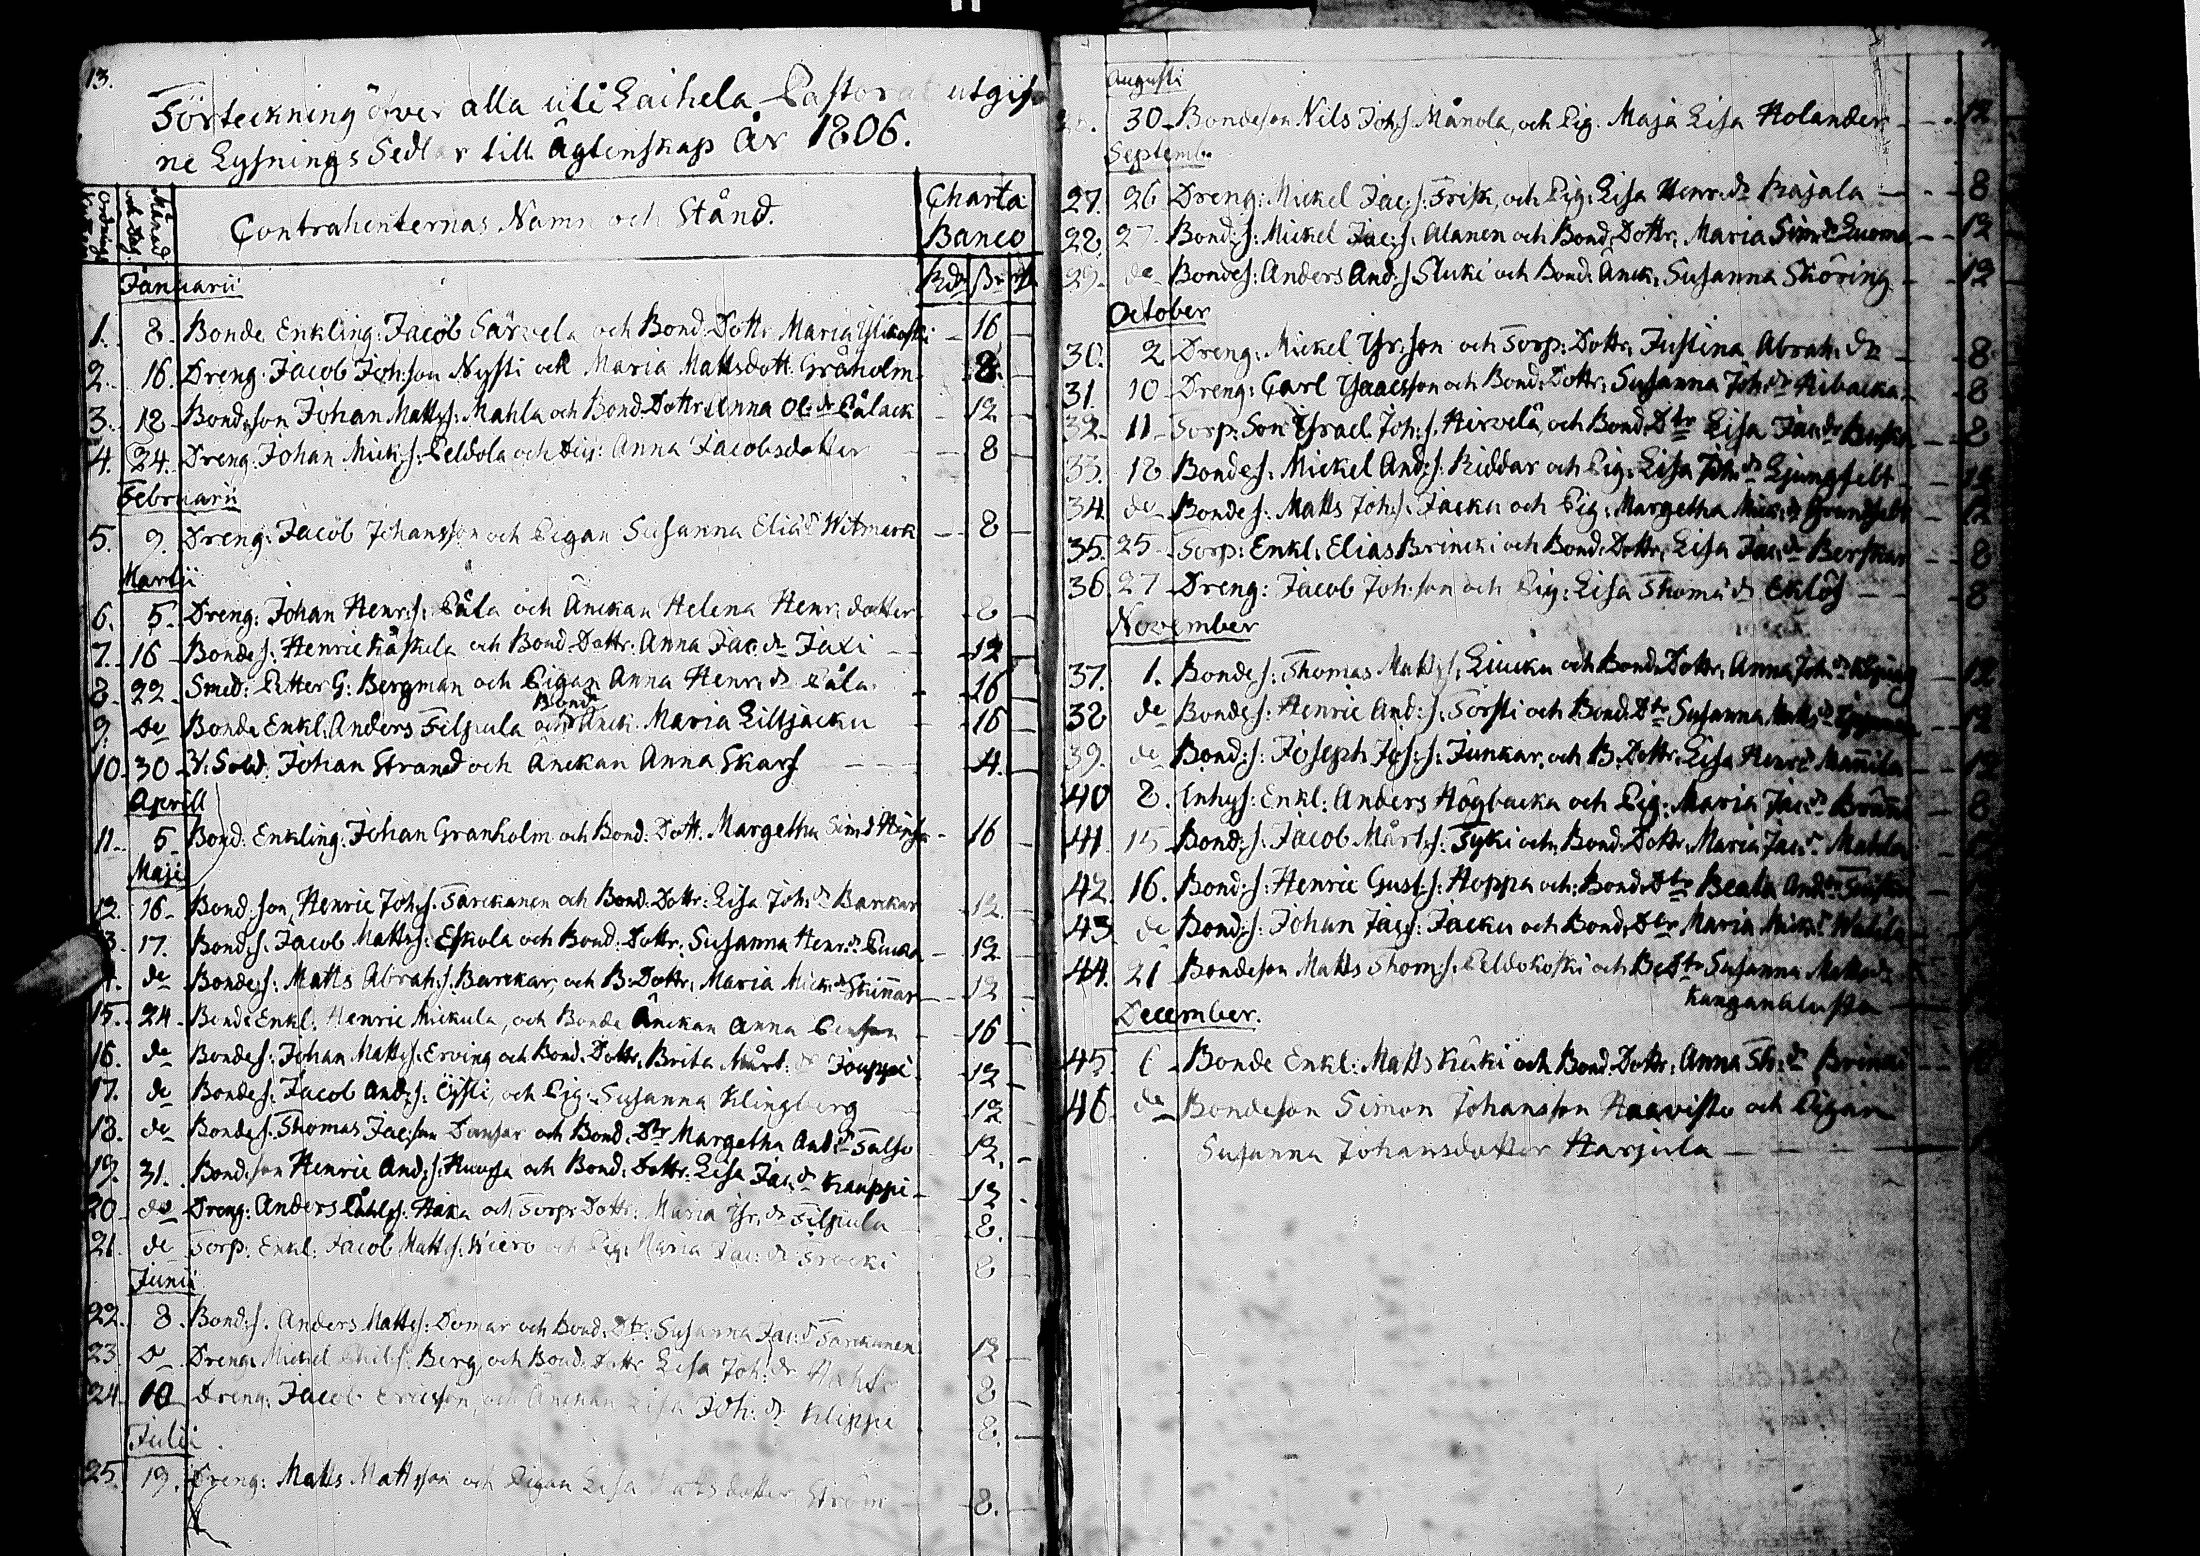 13.
Förteckning öfver alla uti Laihela Pastorat utgif
ne Lysnings Sedlar till Ägtenskap År 1806.
Månad och Dag. Contrahenternas Namn och Stånd. Charta Banco
Januarii Rdr ß rst
1. 8. Bonde Enkling: Jacob Särvela och Bond. Dottr Maria Ylikoski 16
2. 16. Dreng: Jacob Joh:son Nysti och Maria Mattsdott. Gråholm 8.
3. 18 Bond:son Johan Matts:s: Mahla och Bond: Dottr: Anna Ol: dr Pålack 12
4. 24. Dreng: Johan Mick:s: Peldola och Pig: Anna Jacobsdotter 8
Februarii
5. 9. Dreng: Jacob Johansson och Pigan Susanna Elia dr Witmerk 8
Martii
6. 5. Dreng: Johan Henr:s: Påla och Änckan Helena Henr: dotter 8
7. 16 Bonde s: Henric Kåskela och Bond. Dottr: Anna Jac: dr Jaxi 12
8. 22 Smed: Petter G: Bergman och Pigan Anna Henr: dr Påla. 16
9. do Bonde Enkl: Anders Filpula och Bond Änck. Maria Liljäcku 16
10. 30 V: Sold. Johan Strand och Änckan Anna Skarf 4.
Aprill
11. 5. Bond. Enkling: Johan Granholm och Bond. Dott. Margetha Sim: d 16
Maji
12. 16 Bond:son Henric Joh:s: Tarckanen och Bond. Dottr: Lisa Joh: dr Barckar 12
3. 17. Bond:s: Jacob Matts:s: Eskola och Bond: Dottr: Susanna Henr: dr 12
4. do Bonde:s: Matts Abrah:s: Barckar, och B: Dottr: Maria Mick: dr Skinnar 12
15. 24 Bonde Enkl: Henric Mickula, och Bonde Änckan Anna 16
16. do Bonde s: Johan Matts:s: Erving och Bond. Dottr, Brita Mårt: dr Jouppi 12
17. do Bonde s: Jacob And:s: Öysti, och Pig: Susanna Klingberg 12
18. do Bonde s. Thomas Jac:son Dansar och Bond: Dtr Margetha And: dr Talso 12.
19. 31. Bond:son Henric And:s: Huusa och Bond: Dottr: Lisa Jac: dr Kauppi 12
20 do Dreng: Anders Påhls:s: Häka och Torp: Dottr: Maria Isr: dr Filpula 8.
21. do Torp: Enkl: Jacob Matts:s: Wiero och Pig: Maria Jac: dr Frocki 8
Junii
22. 8. Bond:s. Anders Matts:s: Domar och Bond: Dtr: Susanna Jac: dr Tarckanen 12
23. do Dreng: Mickel Phil:s: Berg, och Bond. Dottr Lisa Joh: dr 8
24 10 Dreng: Jacob Ericsson, och Änckan Lisa Joh: dr Klippi 8.
Julii.
25. 19. Dreng: Matts Mattsson och Pigan Lisa Matsdotter Ström 8.
Augusti
30 Bondeson Nils Joh:s: Månola, och Pig. Maja Lisa Holander 12
Septemb.
27. 26 Dreng: Mickel Jac:s: Frisk, och Pig: Lisa Henr: dr Rajala 8
28. 27. Bond:s: Mickel Jac:s: Alanen och Bond: Dottr: Maria Sim: dr Luoma 12
29. do Bondes: Anders And:s Sluki och Bond: Änck: Susanna Sköring 12
October
30. 2 Dreng: Mickel Isr:son och Torp: Dottr: Justina Abrah: dr 8
31. 10 Dreng: Carl Isaacsson och Bond: Dottr: Susanna Joh: dr Ribacka 8
32. 11 Torp: Son Israel Joh:s: Hirvelä, och Bond: Dtr Lisa Jac: dr 8
33. 18 Bonde:s: Mickel And:s: Riddar och Pig: Lisa Joh: dr Ljungfelt 12
34. do Bonde s: Matts Joh:s: Jacku och Pig: Margetha Mick: dr 12
35. 25 Torp: Enkl: Elias Brincki och Bond: Dottr: Lisa Jac: dr Berskar 8
36. 27 Dreng: Jacob Joh:son och Pig: Lisa Thoma dr Eklöf 8
November
37. 1. Bonde s: Thomas Matts:s: Luucku och Bond: Dottr: Anna Joh: dr 12
38 do Bonde s: Henric And:s: Torsti och Bond: Dtr Susanna Matts: dr 12
39. do Bond:s: Joseph Jos:s: Junkar, och B: Dottr: Lisa Henr: dr Mannila 12
40 8. Inhys: Enkl: Anders Högbacka och Pig: Maria Jac: dr 8
41. 15 Bond:s: Jacob Mårt:s: Tyki och Bond: Dottr, Maria Jac: dr Mahla
42. 16. Bond:s: Henric Gust:s: Hoppa och Bond: Dtr Beata And: dr
43. do Bond:s: Johan Jac:s: Jacku och Bond: Dtr Maria Mick: dr
44. 21 Bondeson Matts Thom:s: Peldokoski och B: Dtr Susanna Matts: dr
Kanganalusta
December.
45. 6 Bonde Enkl: Matts Käki och Bond: Dottr: Anna Th: dr
46. do Bondeson Simon Johansson Haavisto och Pigan
Susanna Johansdotter Harjula